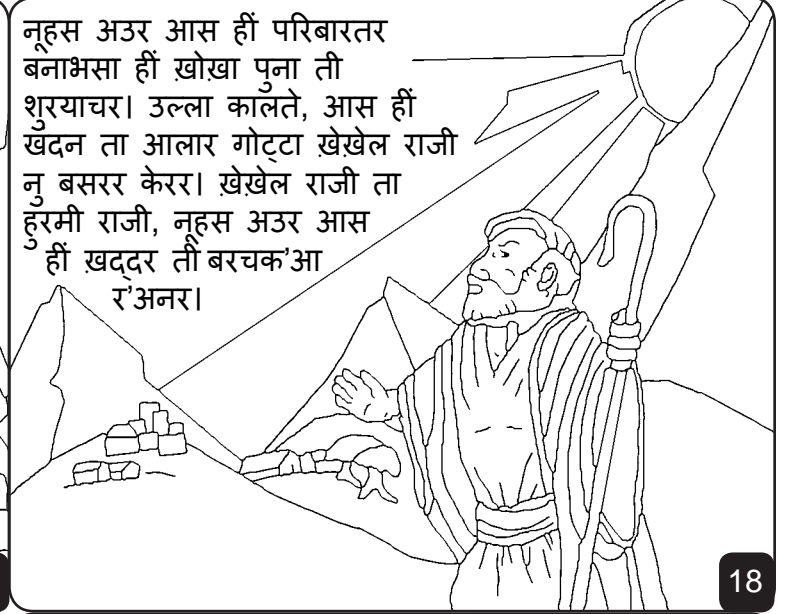 नूहस अउर आस हीं परिबारतर
बनाभसा हीं ख़ोख़ा पुना ती
शुरयाचर। उल्ला कालते, आस हीं
खदन ता आलार गोट्टा ख़ेख़ेल राजी
नु बसरर केरर। ख़ेख़ेल राजी ता
हुरमी राजी, नूहस अउर आस
हीं ख़द्दर ती बरचक'आ
र'अनर।
18